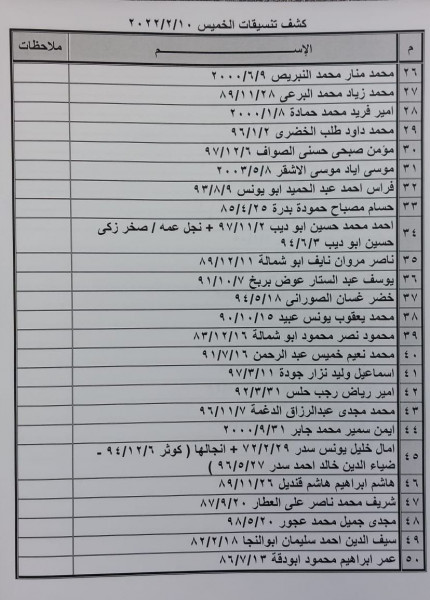 كشف تنسيقات الخميس ٢٠٢٢/٢/١٠
م الإسم ملاحظات
٢٦ محمد منار محمد النبريص ٢٠٠٠/٦/٩
٢٧ محمد زياد محمد البرعى ٨٩/١١/٢٨
٢٨ امير فريد محمد حمادة ٢٠٠٠/١/٨
٢٩ محمد داود طلب الخضرى ٩٦/١/٢
٣٠ مؤمن صبحى حسنى الصواف ٩٧/١٢/٦
٣١ موسى اياد موسى الاشقر ٢٠٠٣/٥/٨
٣٢ فراس احمد عبد الحميد ابو يونس ٩٣/٨/٩
٣٣ حسام مصباح حمودة بدرة ٨٥/٤/٢٥
٣٤ احمد محمد حسين ابو ديب ٩٧/١١/٢ + نجل عمه / صخر زكى
حسين ابو ديب ٩٤/٦/٣
٣٥ ناصر مروان نايف ابو شمالة ٨٩/١٢/١١
٣٦ يوسف عبد الستار عوض بربخ ٩١/١٠/٧
٣٧ خضر غسان الصورانى ٩٤/٥/١٨
٣٨ محمد يعقوب يونس عبيد ٩٠/١٠/١٥
٣٩ محمود نصر محمود ابو شمالة ٨٣/١٢/١٦
٤٠ محمد نعيم خميس عبد الرحمن ٩١/٧/١٦
٤١ اسماعيل وليد نزار جودة ٩٧/٣/١١
٤٢ امير رياض رجب حلس ٩٢/٣/٣١
٤٣ محمد مجدى عبدالرزاق الدغمة ٩٦/١١/٧
٤٤ ايمن سمير محمد جابر ٢٠٠٠/٩/٣١
٤٥ امال خليل يونس سدر ٧٢/٢/٢٩ + انجالها ( كوثر ٩٤/١٢/٦ -
ضياء الدين خالد احمد سدر ٩٦/٥/٢٧ )
٤٦ هاشم ابراهيم هاشم قنديل ٨٩/١١/٢٦
٤٧ شريف محمد ناصر على العطار ٨٧/٩/٢٠
٤٨ مجدى جميل محمد عجور ٩٨/٥/٢٠
٤٩ سيف الدين احمد سليمان ابوالنجا ٨٢/٢/١٨
٥٠ عمر ابراهيم محمود ابودقة ٨٦/٧/١٣